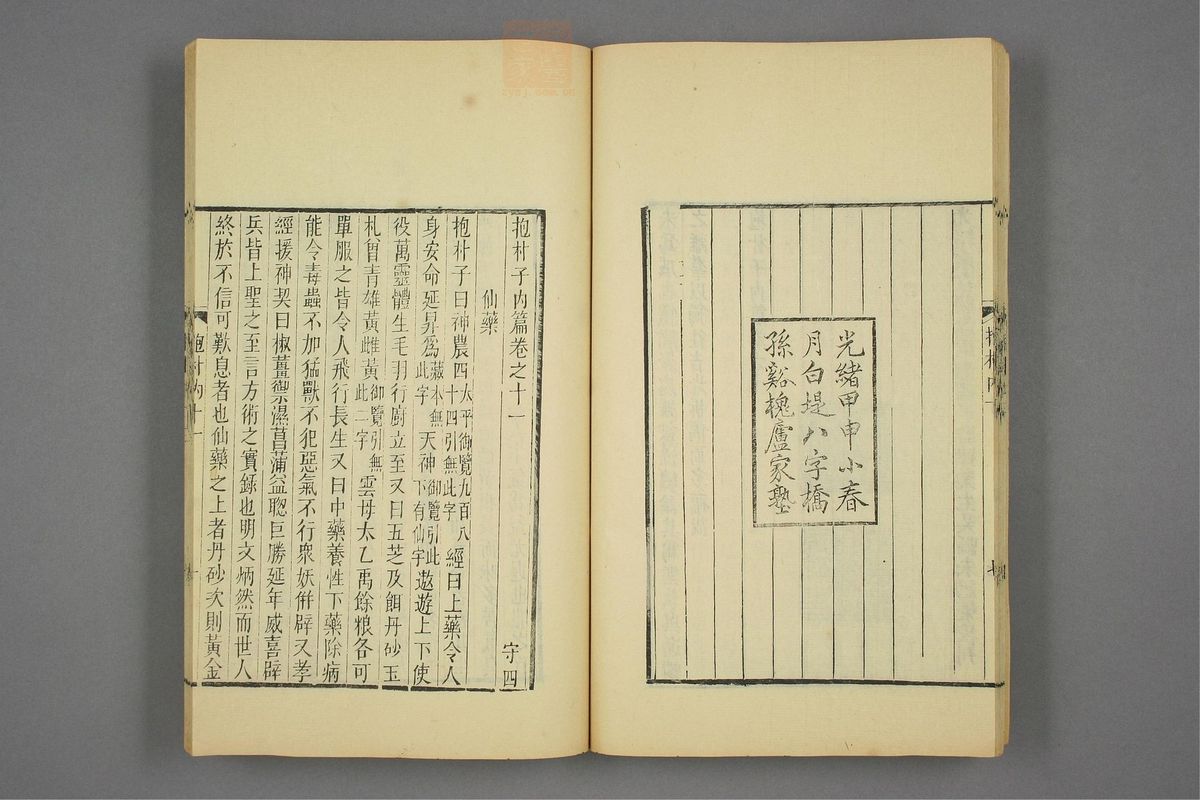 光緒甲申小春
月白堤八字橋
孫谿槐廬家塾
抱朴子內篇卷之十一
守四
仙藥
抱朴子曰神農四太平御覽九百八十四引無此字經曰上藥令人
身安命延昇爲藏本無此字天神御覽引此下有仙字遨遊上下使
役萬靈體生毛羽行廚立至又曰五芝及餌丹砂玉
札曾青雄黃雌黃御覽引無此二字雲母太乙禹餘粮各可
單服之皆令人飛行長生又曰中藥養性下藥除病
能令毒蟲不加猛獸不犯惡氣不行衆妖併辟又孝
經援神契曰椒薑禦濕菖蒲益聰巨勝延年威喜辟
兵皆上聖之至言方術之實錄也明文炳然而世人
終於不信可歎息者也仙藥之上者丹砂次則黃金
抱朴內十一
zysj.com.cn